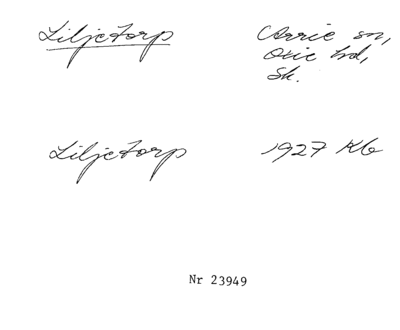 Liljetorp Arrie sn,
Oxie hd,
Sk.
Liljetorp 1927 Kb
Nr 23949